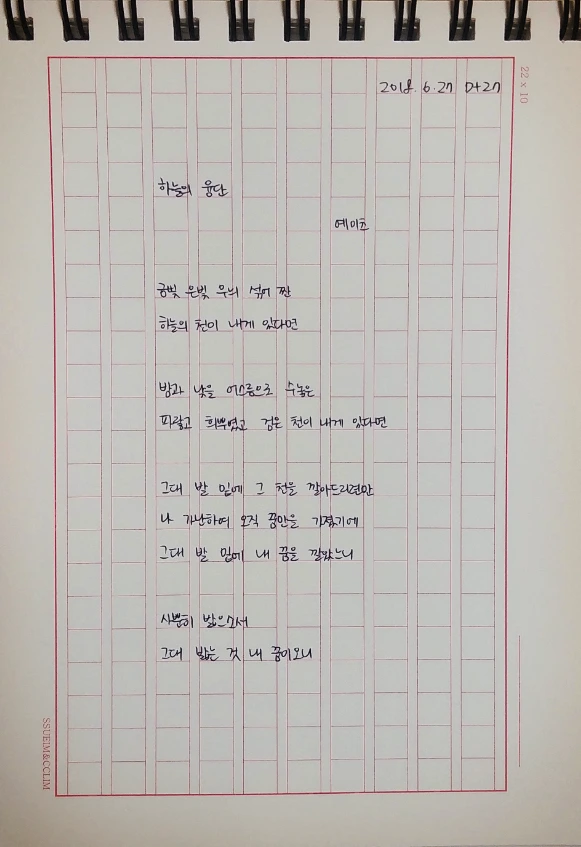 2018. 6. 27 D+27
22 x 10
하늘의 융단
예이츠
금빛 은빛 무늬 섞어 짠
하늘의 천이 내게 있다면
밤과 낮을 어스름으로 수놓은
파랗고 희뿌옇고 검은 천이 내게 있다면
그대 발 밑에 그 천을 깔아드리련만
나 가난하여 오직 꿈만을 가졌기에
그대 발 밑에 내 꿈을 깔았느니
사뿐히 밟으소서
그대 밟는 것 내 꿈이오니
SSUEIM&CCLIM